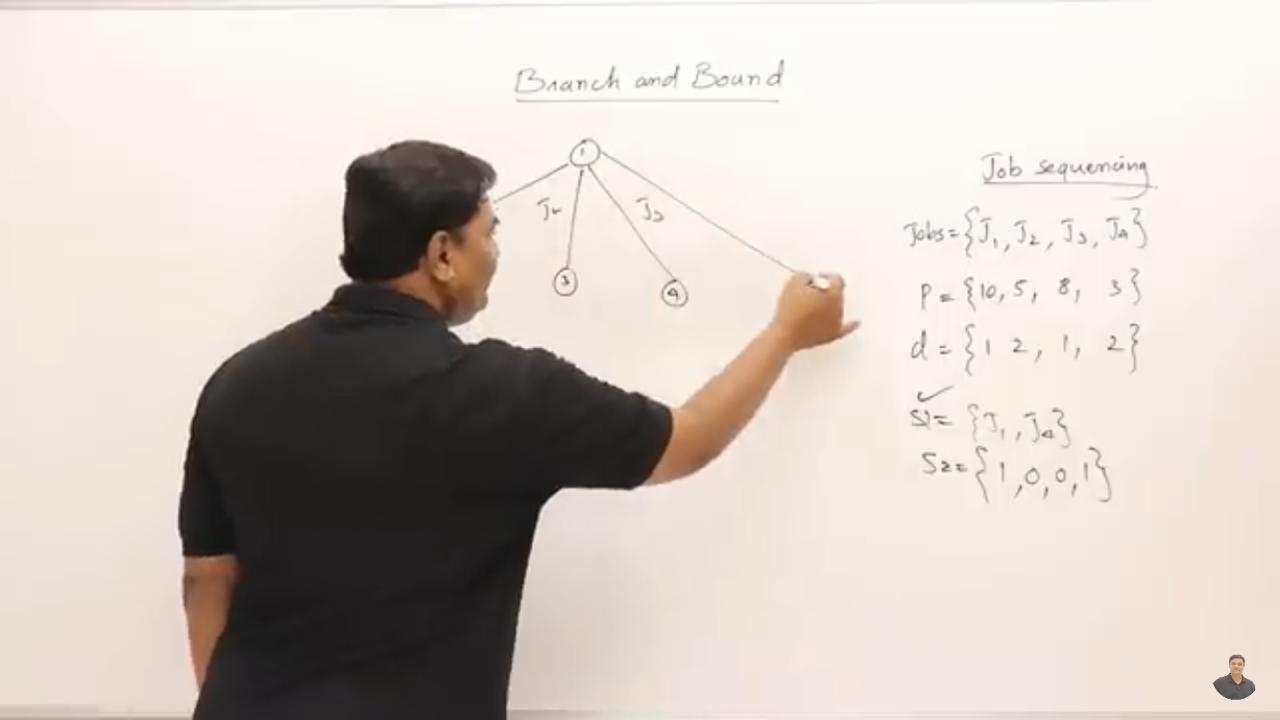 Branch and Bound
1
J2 J3
3
4
Job sequencing
Jobs = {J1, J2, J3, J4}
P = {10, 5, 8, 3}
d = {1 2, 1, 2}
✓
S1 = {J1, J4}
S2 = {1, 0, 0, 1}